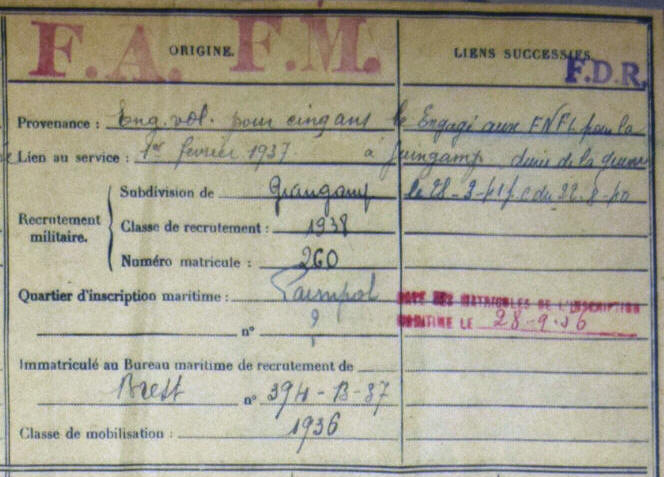 F.A. F.M.
ORIGINE.
LIENS SUCCESSIFS
F.D.R.
Provenance : Eng. vol. pour cinq ans le
Lien au service : 1er février 1937 à Guingamp
Recrutement militaire.
Subdivision de Guingamp
Classe de recrutement : 1938
Numéro matricule : 260
Quartier d'inscription maritime : Paimpol
n° ?
Immatriculé au Bureau maritime de recrutement de
Brest n° 394-B-37
Classe de mobilisation : 1936
Engagé aux FNFL pour la
durée de la guerre
le 28-9-41 p.c du 22-8-40
DES MATRICULES DE L'INSCRIPTION
MARITIME LE 28-9-36